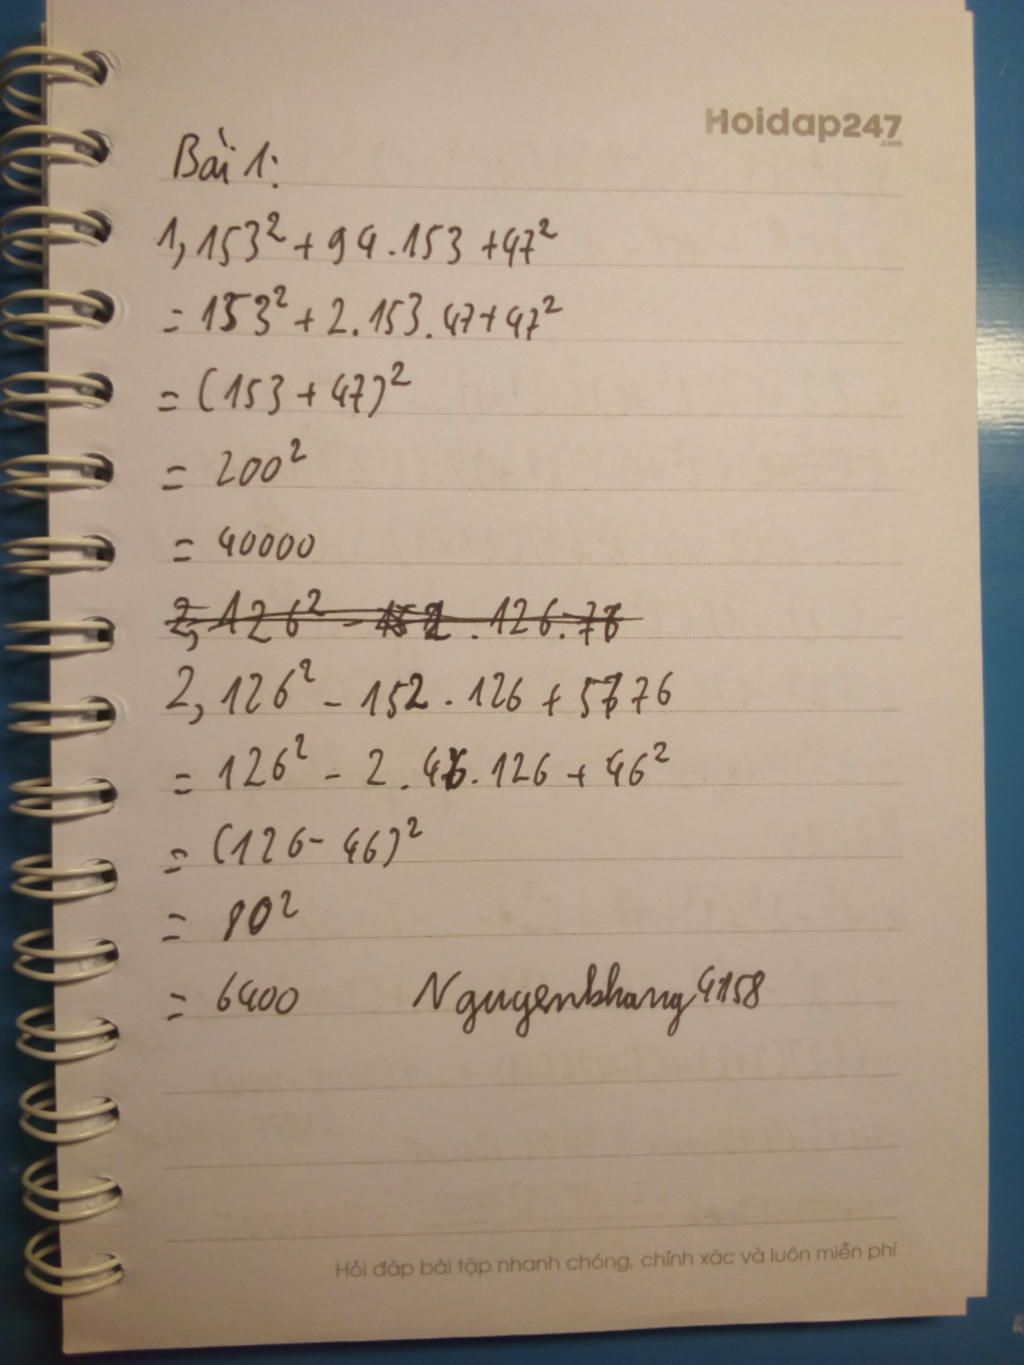 Hoidap247
.com
Bài 1:
1, 153² + 94 . 153 + 47²
= 153² + 2 . 153 . 47 + 47²
= (153 + 47)²
= 200²
= 40000
2, 126² - 152 . 126 + 5776
= 126² - 2 . 46 . 126 + 46²
= (126 - 46)²
= 80²
= 6400 Nguyenkhang4158
Hỏi đáp bài tập nhanh chóng, chính xác và luôn miễn phí